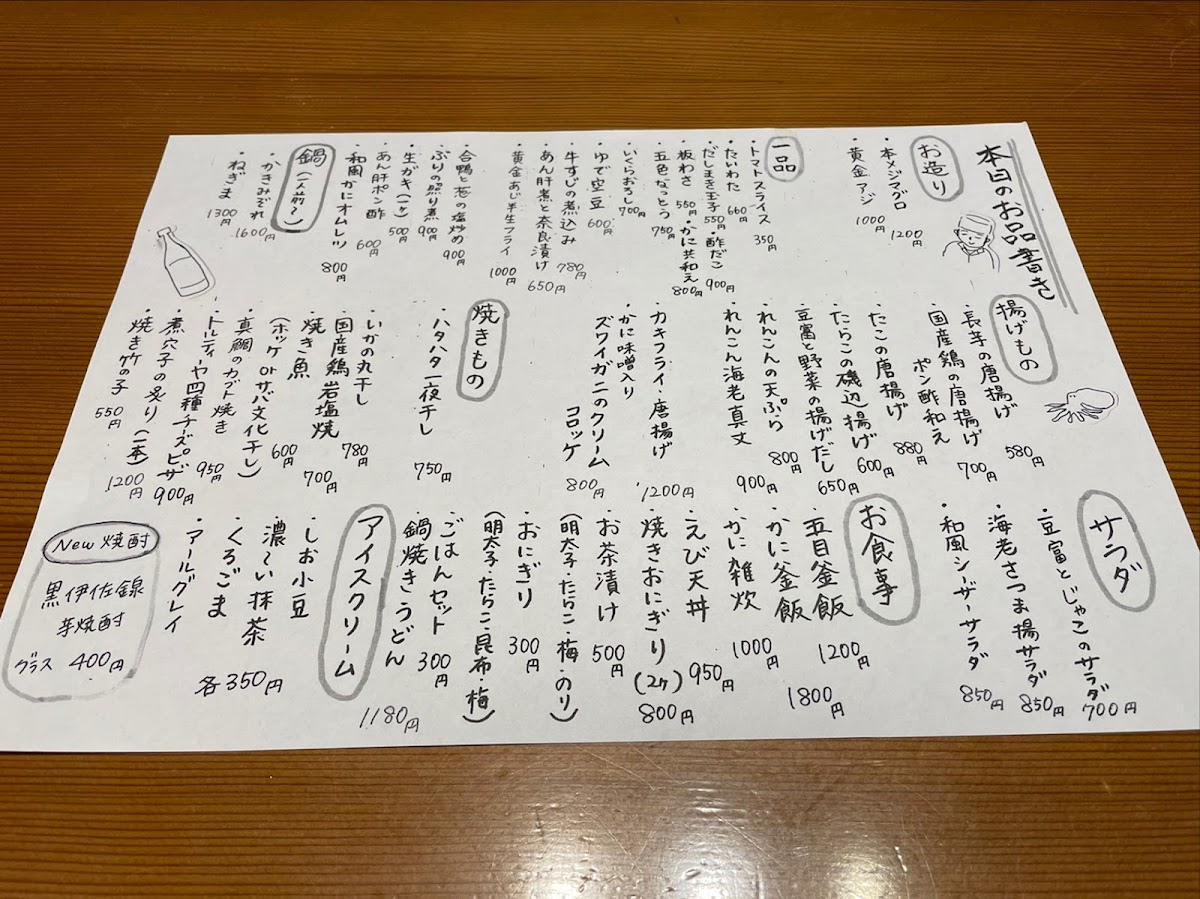 本日のお品書き
お造り
・本メジマグロ
1200円
・黄金アジ
1000円
一品
・トマトスライス
350円
・たいわた
660円
・だしまき玉子
550円
・酢だこ
900円
・板わさ
550円
・かに共和え
800円
・五色なっとう
750円
・いくらおろし
700円
・ゆで空豆
600円
・牛すじの煮込み
780円
・あん肝煮と奈良漬け
650円
・黄金あじ半生フライ
1000円
・合鴨と葱の塩炒め
900円
・ぶりの照り煮
900円
・生ガキ(一ヶ)
500円
・あん肝ポン酢
600円
・和風かにオムレツ
800円
鍋(一人前〜)
・かきみぞれ
1600円
・ねぎま
1300円
揚げもの
・長芋の唐揚げ
580円
・国産鶏の唐揚げ
ポン酢和え
700円
・たこの唐揚げ
880円
・たらこの磯辺揚げ
600円
・豆富と野菜の揚げだし
650円
・れんこんの天ぷら
800円
・れんこん海老真丈
900円
・カキフライ・唐揚げ
1200円
・かに味噌入り
ズワイガニのクリーム
コロッケ
800円
焼きもの
・ハタハタ一夜干し
750円
・いかの丸干し
780円
・国産鶏岩塩焼
700円
・焼き魚
(ホッケorサバ文化干し)
600円
・真鯛のカブト焼き
950円
・トルティーヤ四種チーズピザ
900円
・煮穴子の炙り(一本)
1200円
・焼き竹の子
550円
サラダ
・豆富とじゃこのサラダ
700円
・海老さつま揚サラダ
850円
・和風シーザーサラダ
850円
お食事
・五目釜飯
1200円
・かに釜飯
1800円
・かに雑炊
1000円
・えび天丼
950円
・焼きおにぎり(2ヶ)
800円
・お茶漬け
500円
(明太子・たらこ・梅・のり)
・おにぎり
300円
(明太子・たらこ・昆布・梅)
・ごはんセット
300円
・鍋焼きうどん
1180円
アイスクリーム
・しお小豆
・濃〜い抹茶
・くろごま
・アールグレイ
各350円
New焼酎
黒伊佐錦
芋焼酎
グラス 400円